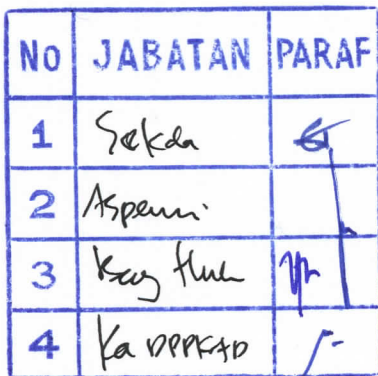 NO JABATAN PARAF
1 Sekda
2 Aspem
3 Kag Huk
4 Ka DPPKAD